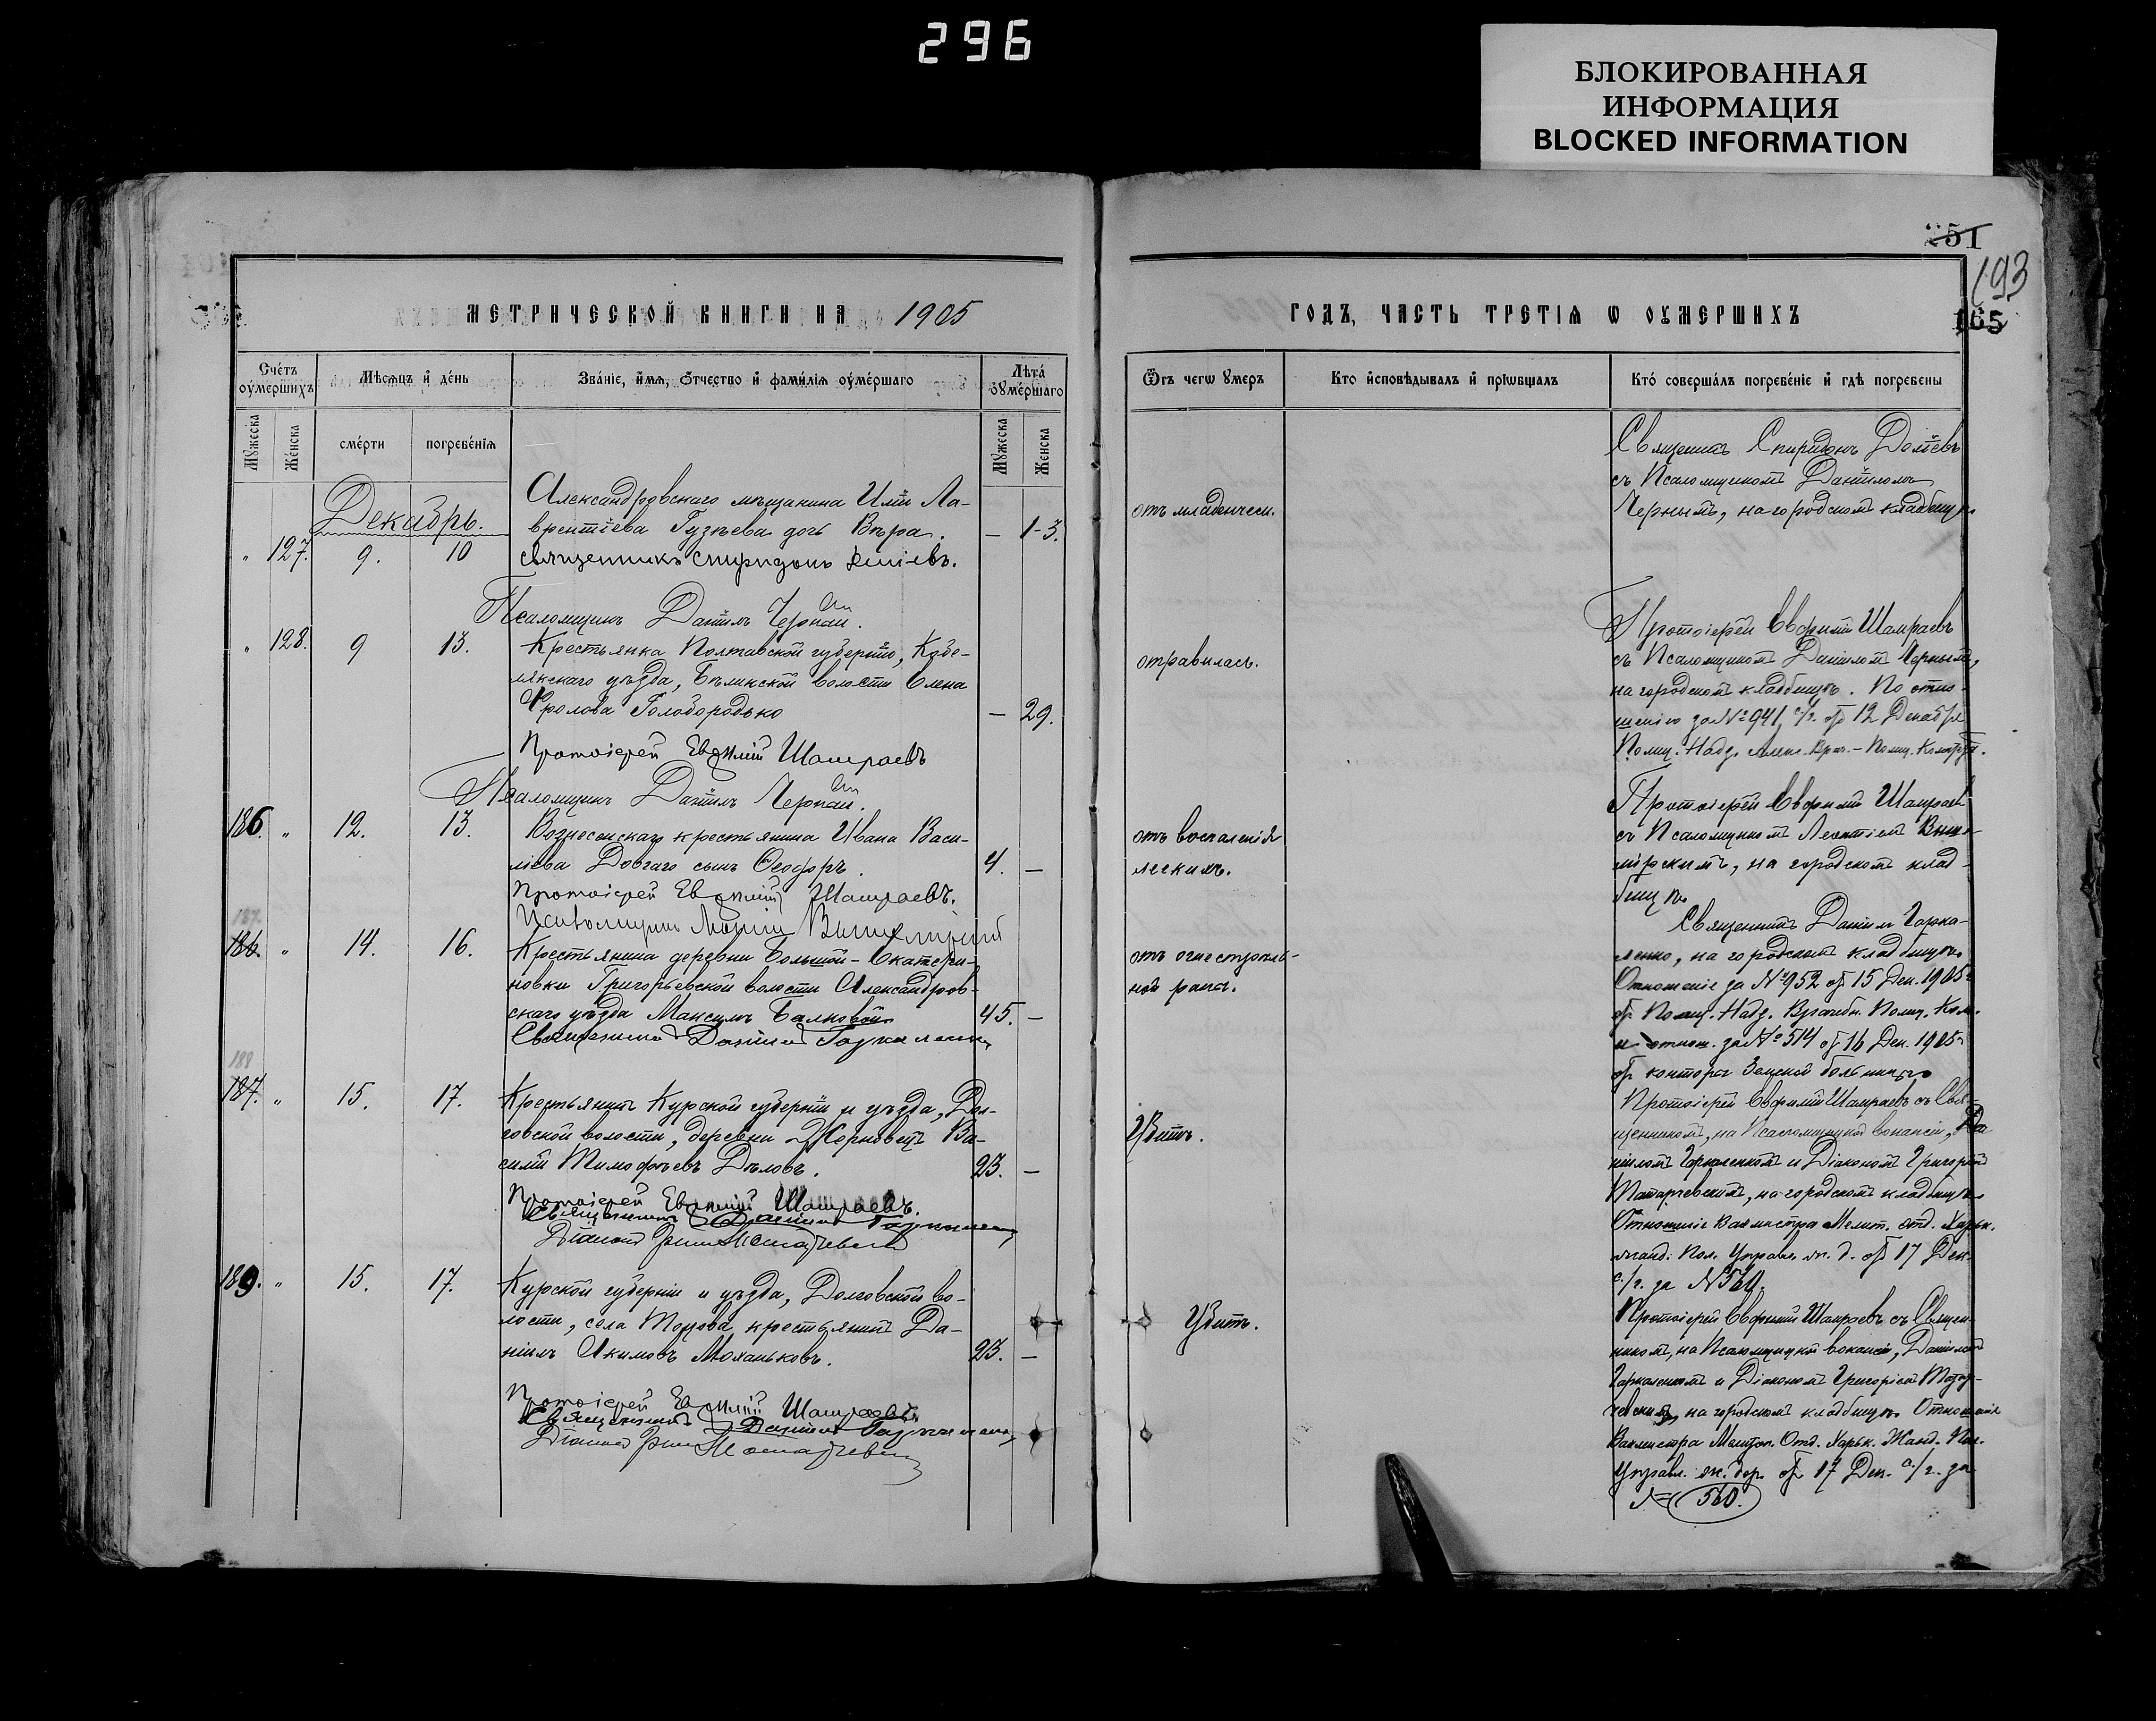 296
БЛОКИРОВАННАЯ
ИНФОРМАЦИЯ
BLOCKED INFORMATION
251
193
165
МЕТРИЧЕСКОЙ КНИГИ НА 1905
ГОДЪ, ЧАСТЬ ТРЕТІѦ Ѡ ОУМЕРШИХЪ
Счетъ оумершихъ
Мѣсѧцъ и день
Званіе, имѧ, отчество и фамиліѧ оумершаго
Лѣта оумершаго
Мужеска
Женска
смерти
погребеніѧ
Мужеска
Женска
Ѿ чегѡ умеръ
Кто исповѣдывалъ и пріѡбщалъ
Кто совершалъ погребеніе и гдѣ погребены
Декабрь.
" 127. 9. 10
Александровскаго мѣщанина Иліи Ла-
врентіева Гузѣева дочь Вѣра. — 1-3.
Священникъ Спиридонъ
Псаломщикъ Даніилъ Черный.
отъ младенческ.
Священникъ Спиридонъ
съ Псаломщикомъ Даніиломъ
Чернымъ, на городскомъ кладбищѣ
" 128. 9 13.
Крестьянка Полтавской губерніи, Кобе-
лякскаго уѣзда, Бѣликской волости Елена
Фролова Голобородько — 29.
Протоіерей Евфимій Шамраевъ
Псаломщикъ Даніилъ Черный.
отравилась.
Протоіерей Евфимій Шамраевъ
съ Псаломщикомъ Даніиломъ Чернымъ,
на городскомъ кладбищѣ. По отно-
шенію за № 941, с/г. отъ 12 Декабря
Полиц. Надз. Алекс. Врач.-Полиц.
186. " 12. 13.
Вознесенскаго крестьянина Ивана Васи-
ліева Довгаго сынъ Ѳеодоръ. 4. —
Протоіерей Евфимій Шамраевъ.
Псаломщикъ
отъ воспаленія
легкихъ.
Протоіерей Евфимій Шамраевъ
съ Псаломщикомъ Леонтіемъ
на городскомъ клад-
бищѣ
187.
186. " 14. 16.
Крестьянина деревни Большой-Екатери-
новки Григорьевской волости Александров-
скаго уѣзда Максимъ Балковой 45. —
Священникъ Даніилъ Гаркаленко
отъ огнестрѣль-
ной раны.
Священникъ Даніилъ Гарка-
ленко, на городскомъ кладбищѣ
Отношеніе за № 952 отъ 15 Дек. 1905 г.
отъ Полиц. Надз. Врачебн. Полиц. Ком.
и отнош. за № 514 отъ 16 Дек. 1905 г.
отъ конторы Земской больницы
188
187. " 15. 17.
Крестьянинъ Курской губерніи и уѣзда, Дол-
говской волости, деревни Жерновецъ Ва-
силій Тимофѣевъ Дѣловъ. 23. —
Протоіерей Евфимій Шамраевъ.
Священникъ Даніилъ Гаркаленко
Діаконъ
Убитъ.
Протоіерей Евфимій Шамраевъ съ Свя-
щенникомъ, на Псаломщицкой вакансіи, Да-
ніиломъ Гаркаленкомъ и Діакономъ Григоріемъ
на городскомъ кладбищѣ
Отношеніе Вахмистра Мелит. отд. Харьк.
жанд. Пол. Управл. ж. д. отъ 17 Дек.
с/г. за № 560.
189. " 15. 17.
Курской губерніи и уѣзда, Долговской во-
лости, села крестьянинъ Да-
ніилъ Акимовъ Моханьковъ. 23. —
Протоіерей Евфимій Шамраевъ
Священникъ Даніилъ Гаркаленко
Діаконъ
Убитъ.
Протоіерей Евфимій Шамраевъ съ Священ-
никомъ, на Псаломщицкой вакансіи, Даніиломъ
Гаркаленкомъ и Діакономъ Григоріемъ
на городскомъ кладбищѣ Отношеніе
Вахмистра Мелитоп. Отд. Харьк. Жанд. Пол.
Управл. ж. дор. отъ 17 Дек. с/г. за
№ 560.